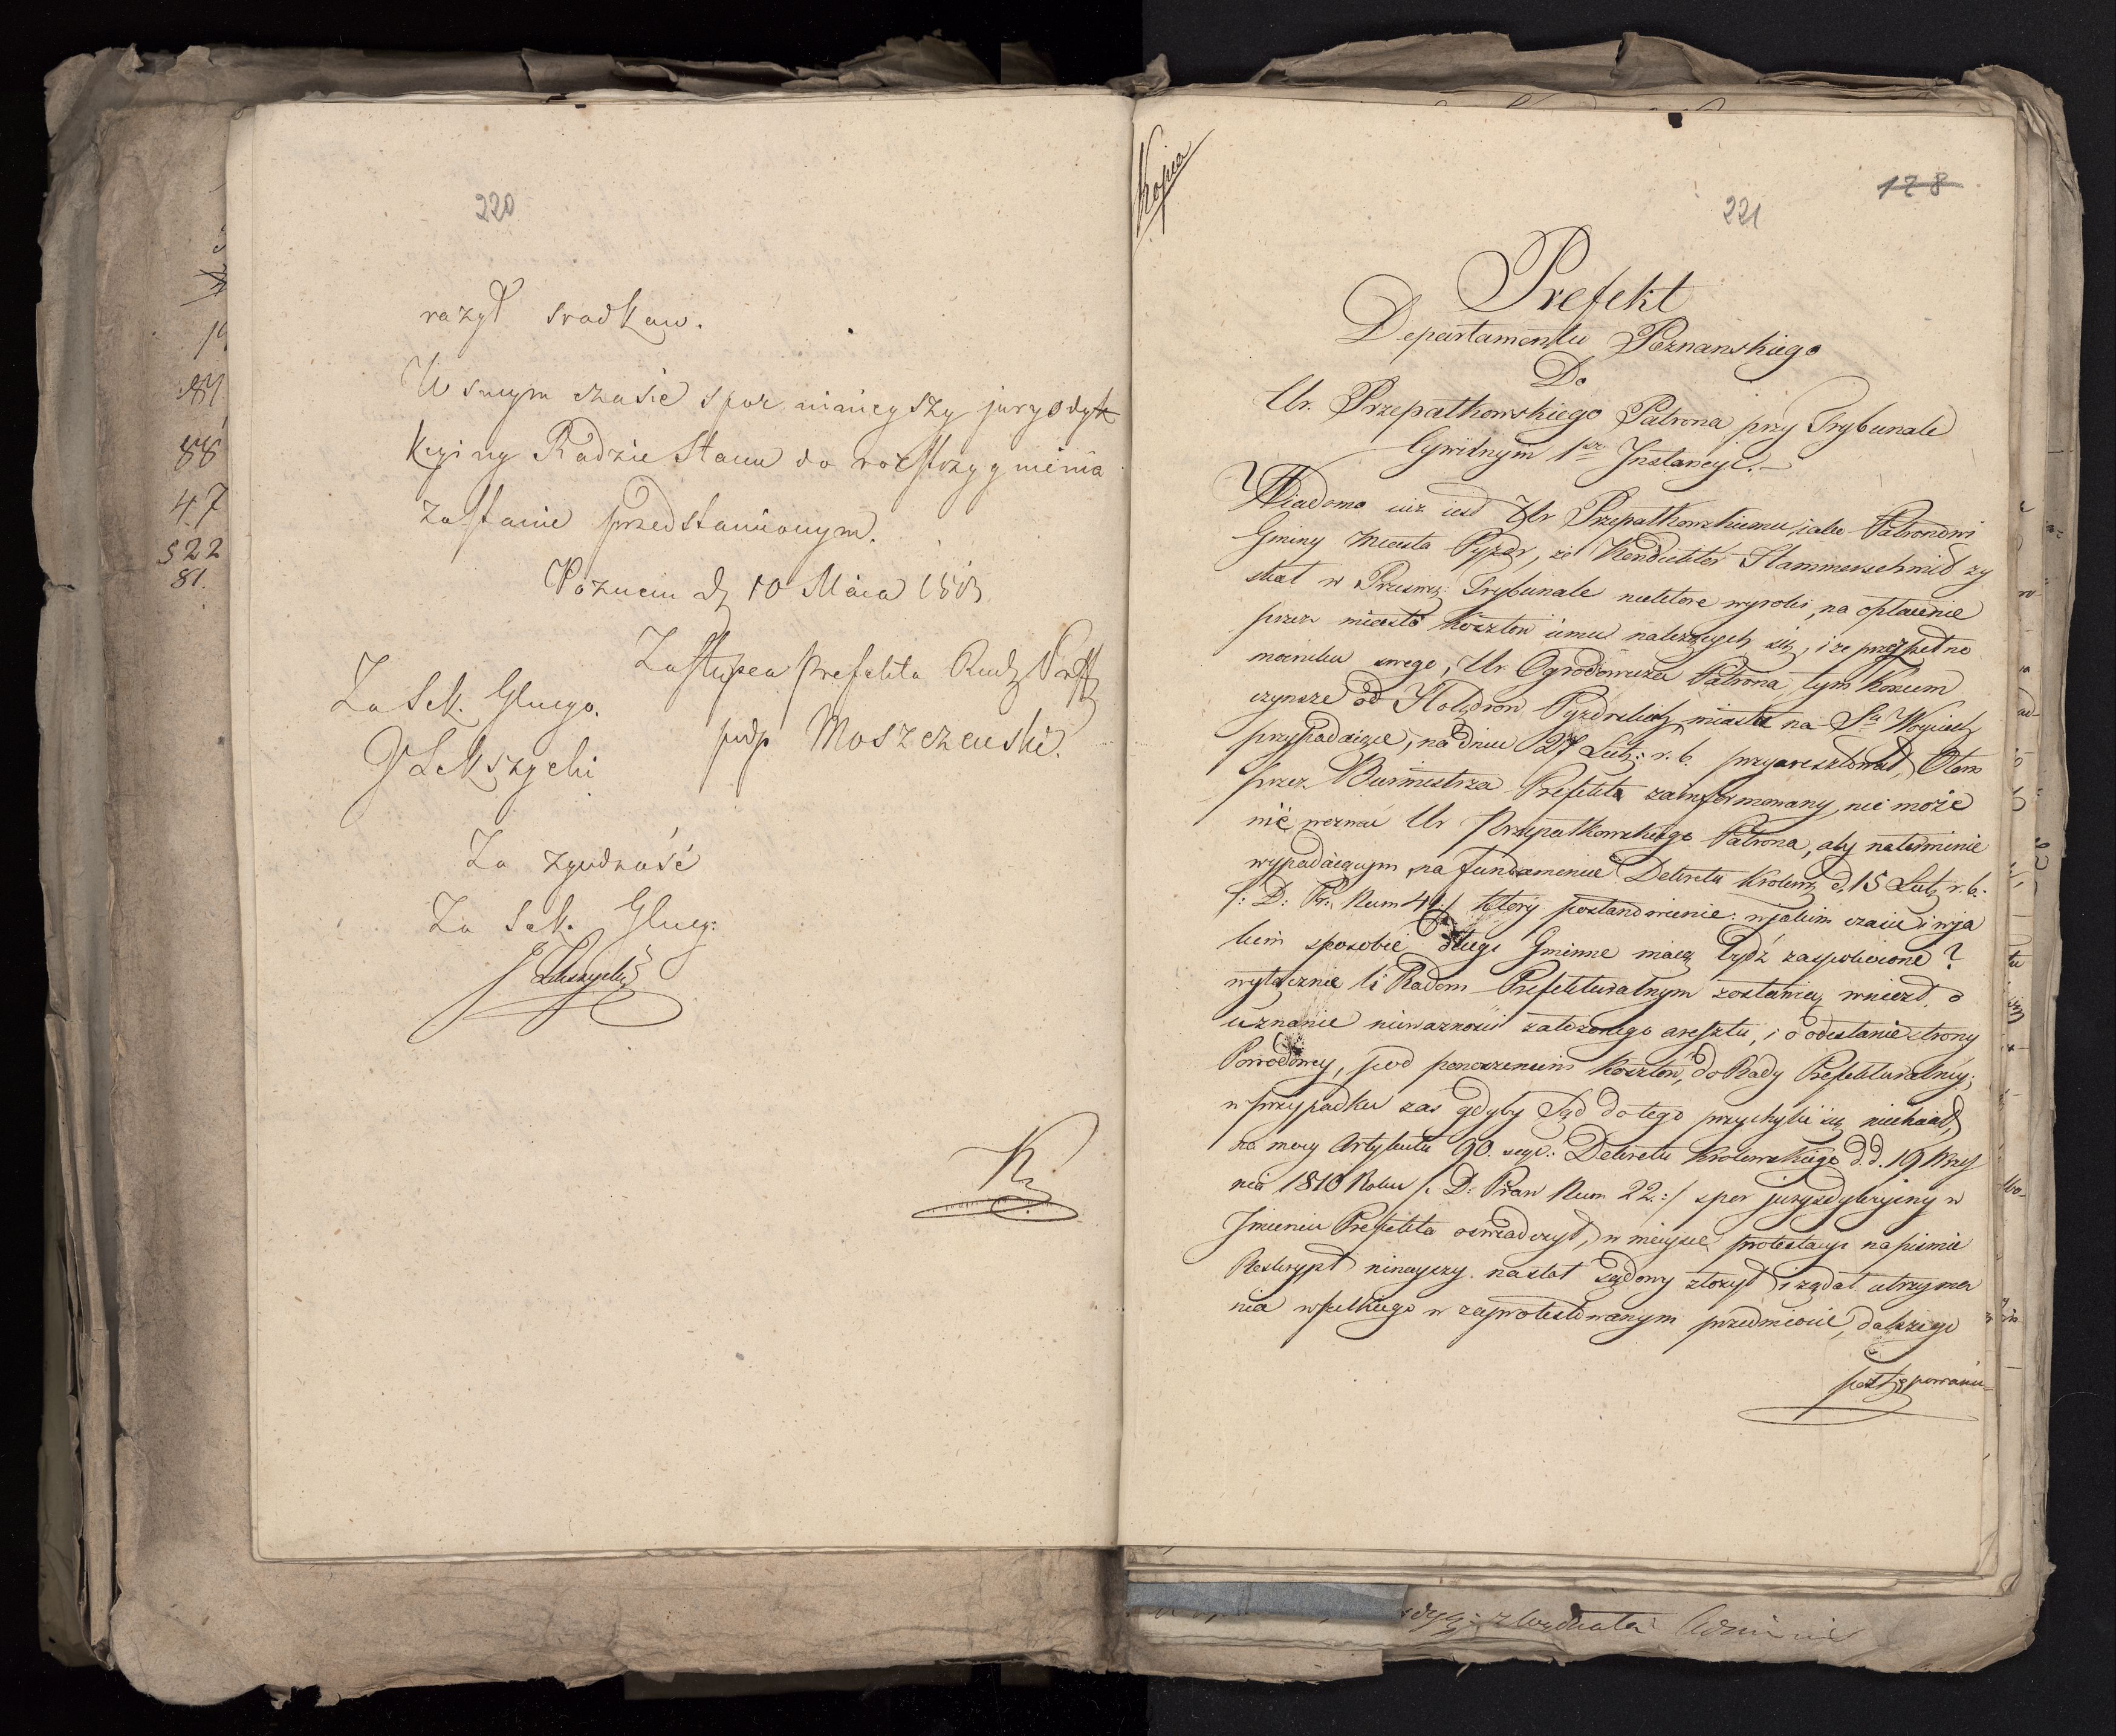 220
raził srodkow.
W swym czasie spor ninieyszy juryzdyk
kcyiny Radzie Stanu do rozstrzygnienia
zostanie przedstawionym.
Poznaniu d. 10 Maia
Zastępca Prefekta Radz Preff
podp Moszczenski.
Za Sek. Glnego.
J Lekszycki
Za zgodność
Za Sek. Glneg:
J Lekszycki
Kopia
128
221
Prefekt
Departamentu Poznanskiego
Do
Ur. Przepałkowskiego Patrona przy Trybunale
Cywilnym 1szr Instancyi.
Wiadomo iuż iest Ur Przepałkowskiemu, iako Patronowi
Gminy Miasta Pyzdr, że Konduktor Hammerschmid zy
skał w Prześwię: Trybunale wyroki, na opłacenie
przez miasto kosztow iemu należących się, i że przez pełno
mocnika swego, Ur. Ogrodowicza Patrona, tym końcem
czynsze od Holędrow Pyzdrskich miastu na Sty Woyciech
przypadaiące, na dniu 27 Lut: r. b. przyaresztował. O tem
przez Burmistrza Prefekt zainformowany, nie może
nie wezwać Ur Przepałkowskiego Patrona, aby na terminie
wypadaiącym, na fundamencie Dekretu Krolews d. 15 Lut r. b.
/: D: Pr: Num 41 :/ ktory postanowienie: w jakim czasie i w ja
kim sposobie długi Gminne maią bydź zaspokoione?
wyłącznie li Radom Prefekturalnym zostawia, wniosł o
uznanie nieważności założonego aresztu, i o odesłanie strony
Powodowey, pod ponoszeniem kosztow, do Rady Prefekturalney;
w przypadku zaś gdyby Sąd do tego przychylić się niechciał,
na mocy Artykułu 90. seqt: Dekretu Krolewskiego d. d. 19 Wrześ
nia 1810 Roku /: D: Praw Num 22 :/ spor juryzdykcyiny w
Imieniu Prefekta oświadczył, w mieysce protestacyi na piśmie
Reskrypt ninieyszy na stoł sądowy złożył i żądał utrzyma
nia wszelkiego w zaprotestowanym przedmiocie, dalszego
postępowania